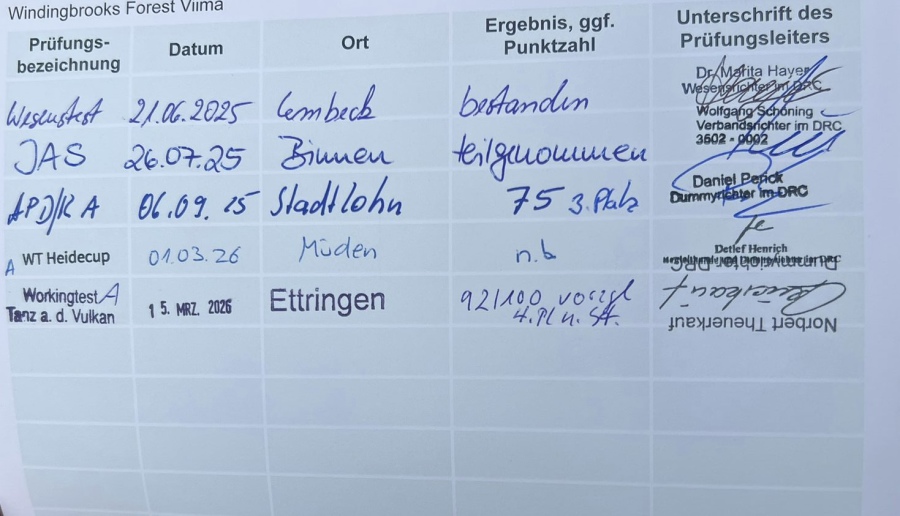 Windingbrooks Forest Viima
Prüfungs-
bezeichnung
Datum
Ort
Ergebnis, ggf.
Punktzahl
Unterschrift des
Prüfungsleiters
Wesenstest 21.06.2025 Lembeck bestanden
Dr. Marita Hayer
Wesensrichter im DRC
JAS 26.07.25 Binnen teilgenommen
Wolfgang Schöning
Verbandsrichter im DRC
3602 - 0002
APD/R A 06.09.25 Stadtlohn 75 3. Platz
Daniel Penck
Dummyrichter im DRC
A WT Heidecup 01.03.26 Müden n.b
Detlef Henrich
Workingtest A
Tanz a. d. Vulkan
15. MRZ. 2026
Ettringen
92/100 vorzgl
4. Pl n. St.
Dummyrichter DRC
Norbert Theuerkauf